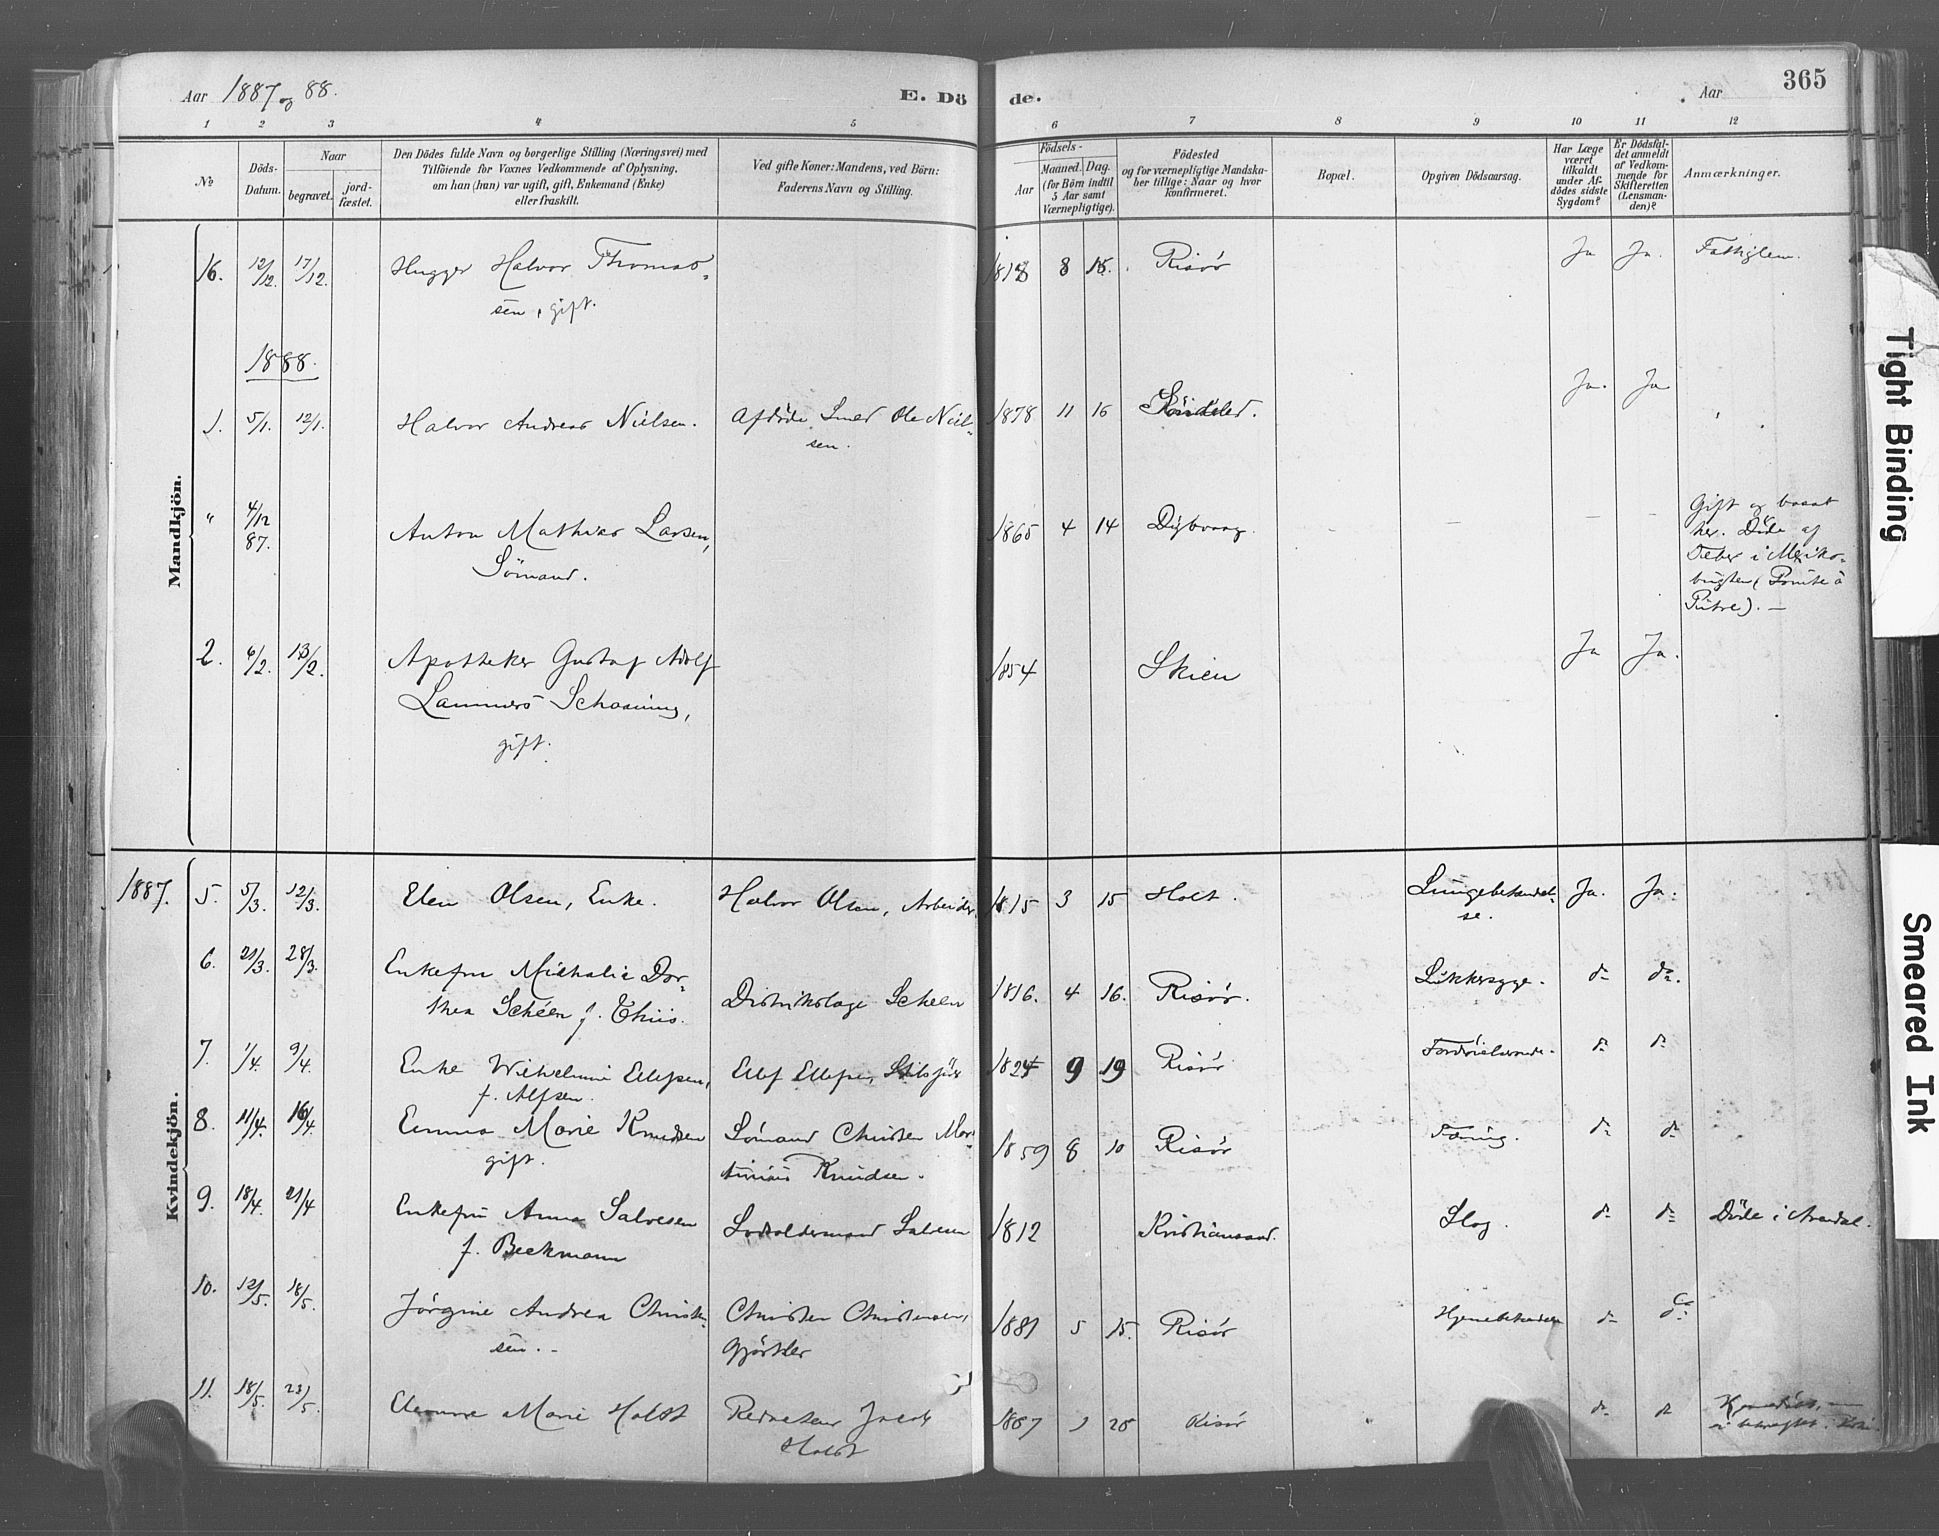 Aar 1887 og 88.
E. Dö de.
Aar
365
1 2 3 4 5 6 7 8 9 10 11 12
No
Döds-Datum.
Naar
begravet.
jord-fæstet.
Den Dödes fulde Navn og borgerlige Stilling (Næringsvei) med
Tilföiende for Voxnes Vedkommende af Oplysning,
om han (hun) var ugift, gift, Enkemand (Enke)
eller fraskilt.
Ved gifte Koner: Mandens, ved Börn:
Faderens Navn og Stilling.
Födsels-
Aar
Maaned.
Dag.
(for Börn indtil
5 Aar samt
Værnepligtige).
Födested
og for værnepligtige Mandska-
ber tillige: Naar og hvor
konfirmeret.
Bopæl.
Opgiven Dödsaarsag.
Har Læge
været
tilkaldt
under Af-
dödes sidste
Sygdom?
Er Dödsfal-
det anmeldt
af Vedkom-
mende for
Skifteretten
(Lensman-
den)?
Anmærkninger.
Mandkjön.
16. 12/12. 17/12. Halvor Thomas- 8 15. Risør Ja Ja. Fattiglem.
sen, gift.
1888.
1. 5/1. 12/1. Halvor Andreas Nielsen. Afdøde Smed Ole Niel- 1878 11 16 Söndeled. Ja. Ja
sen.
" 4/12 87. Anton Mathias Larsen, 1865 4 14 Dybvaag. — — — —
Sömand.
Gift og bosat
her. Døde af
Feber i Mexiko-
bugten (Pointe à
Pitre). —
2. 6/2. 13/2. Apotheker Gustaf Adolf 1854 Skien Ja Ja.
Lammers Schoaning,
gift.
Kvindekjön.
1887. 5. 5/3. 12/3. Elen Olsen, Enke. Halvor Olsen, Arbeider 1815 3 15 Holt. Lungebetændel-
se. Ja. Ja.
6. 21/3. 28/3. Enkefru Michalie Dor-
thea Schéen f. Thiis. Distriktslæge Scheen 1816. 4 16. Risør. Sukkersyge. do do.
7. 1/4. 9/4. Enke Wilhelmine Ellefsen, Ellef Ellefsen, 1824 9 19 Risør do do
f. Alfsen.
8. 11/4. 16/4. Emma Marie Knudsen Sömand Christen Mar-
gift. tinius Knudsen. 1859 8 10 Risør Tæring. do do
9. 18/4. 21/4 Enkefru Anna Salvesen Lodsoldermand Salvesen 1812 Kristianssand. Slag. do do Døde i Arendal.
f. Beckmann
10. 12/5. 18/5. Jörgine Andrea Christen- Christen Christensen, 1881 5 15. Risør Hjernebetændelse do do
sen. Gjørtler
11. 18/5. 23/5. Marie Holst Redaktør Jacob 1887 28 Risør do do
Holst
Tight Binding
Smeared Ink